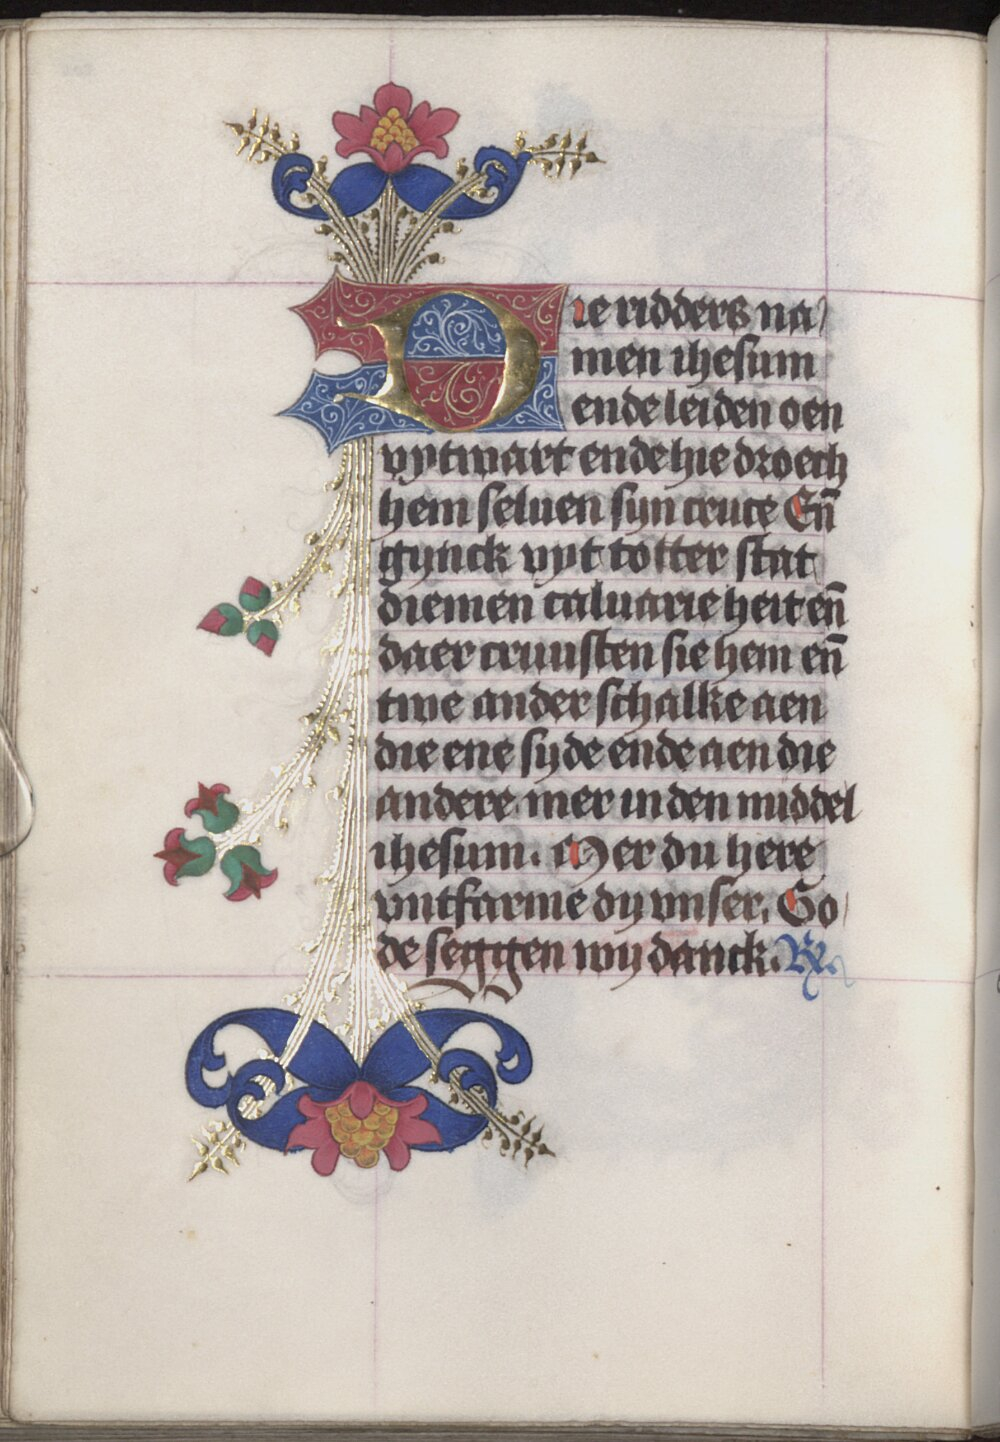 Die ridders na
men ihesum
ende leiden oen
vytwart ende hie droech
hem seluen syn cruce En̄
gynck vyt totter stat
diemen caluarie heit en̄
daer cruusten sie hem en̄
twe ander schalke aen
die ene syde ende aen die
andere mer in den middel
ihesum. Mer du here
vntfarme dy vnser. Go
de seggen wy danck. Rx